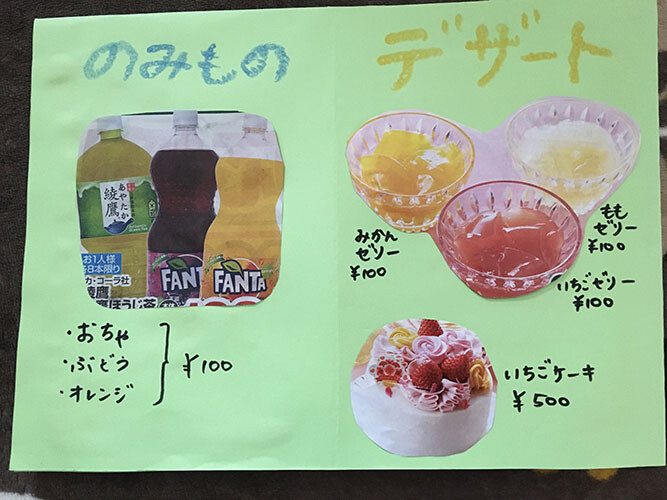 のみもの
あやたか
綾鷹
お1人様
カ・コーラ社
綾鷹
ほうじ茶
FANTA
FANTA
・おちゃ
・ぶどう
・オレンジ
¥100
デザート
みかん
ゼリー
¥100
もも
ゼリー
¥100
いちごゼリー
¥100
いちごケーキ
¥500